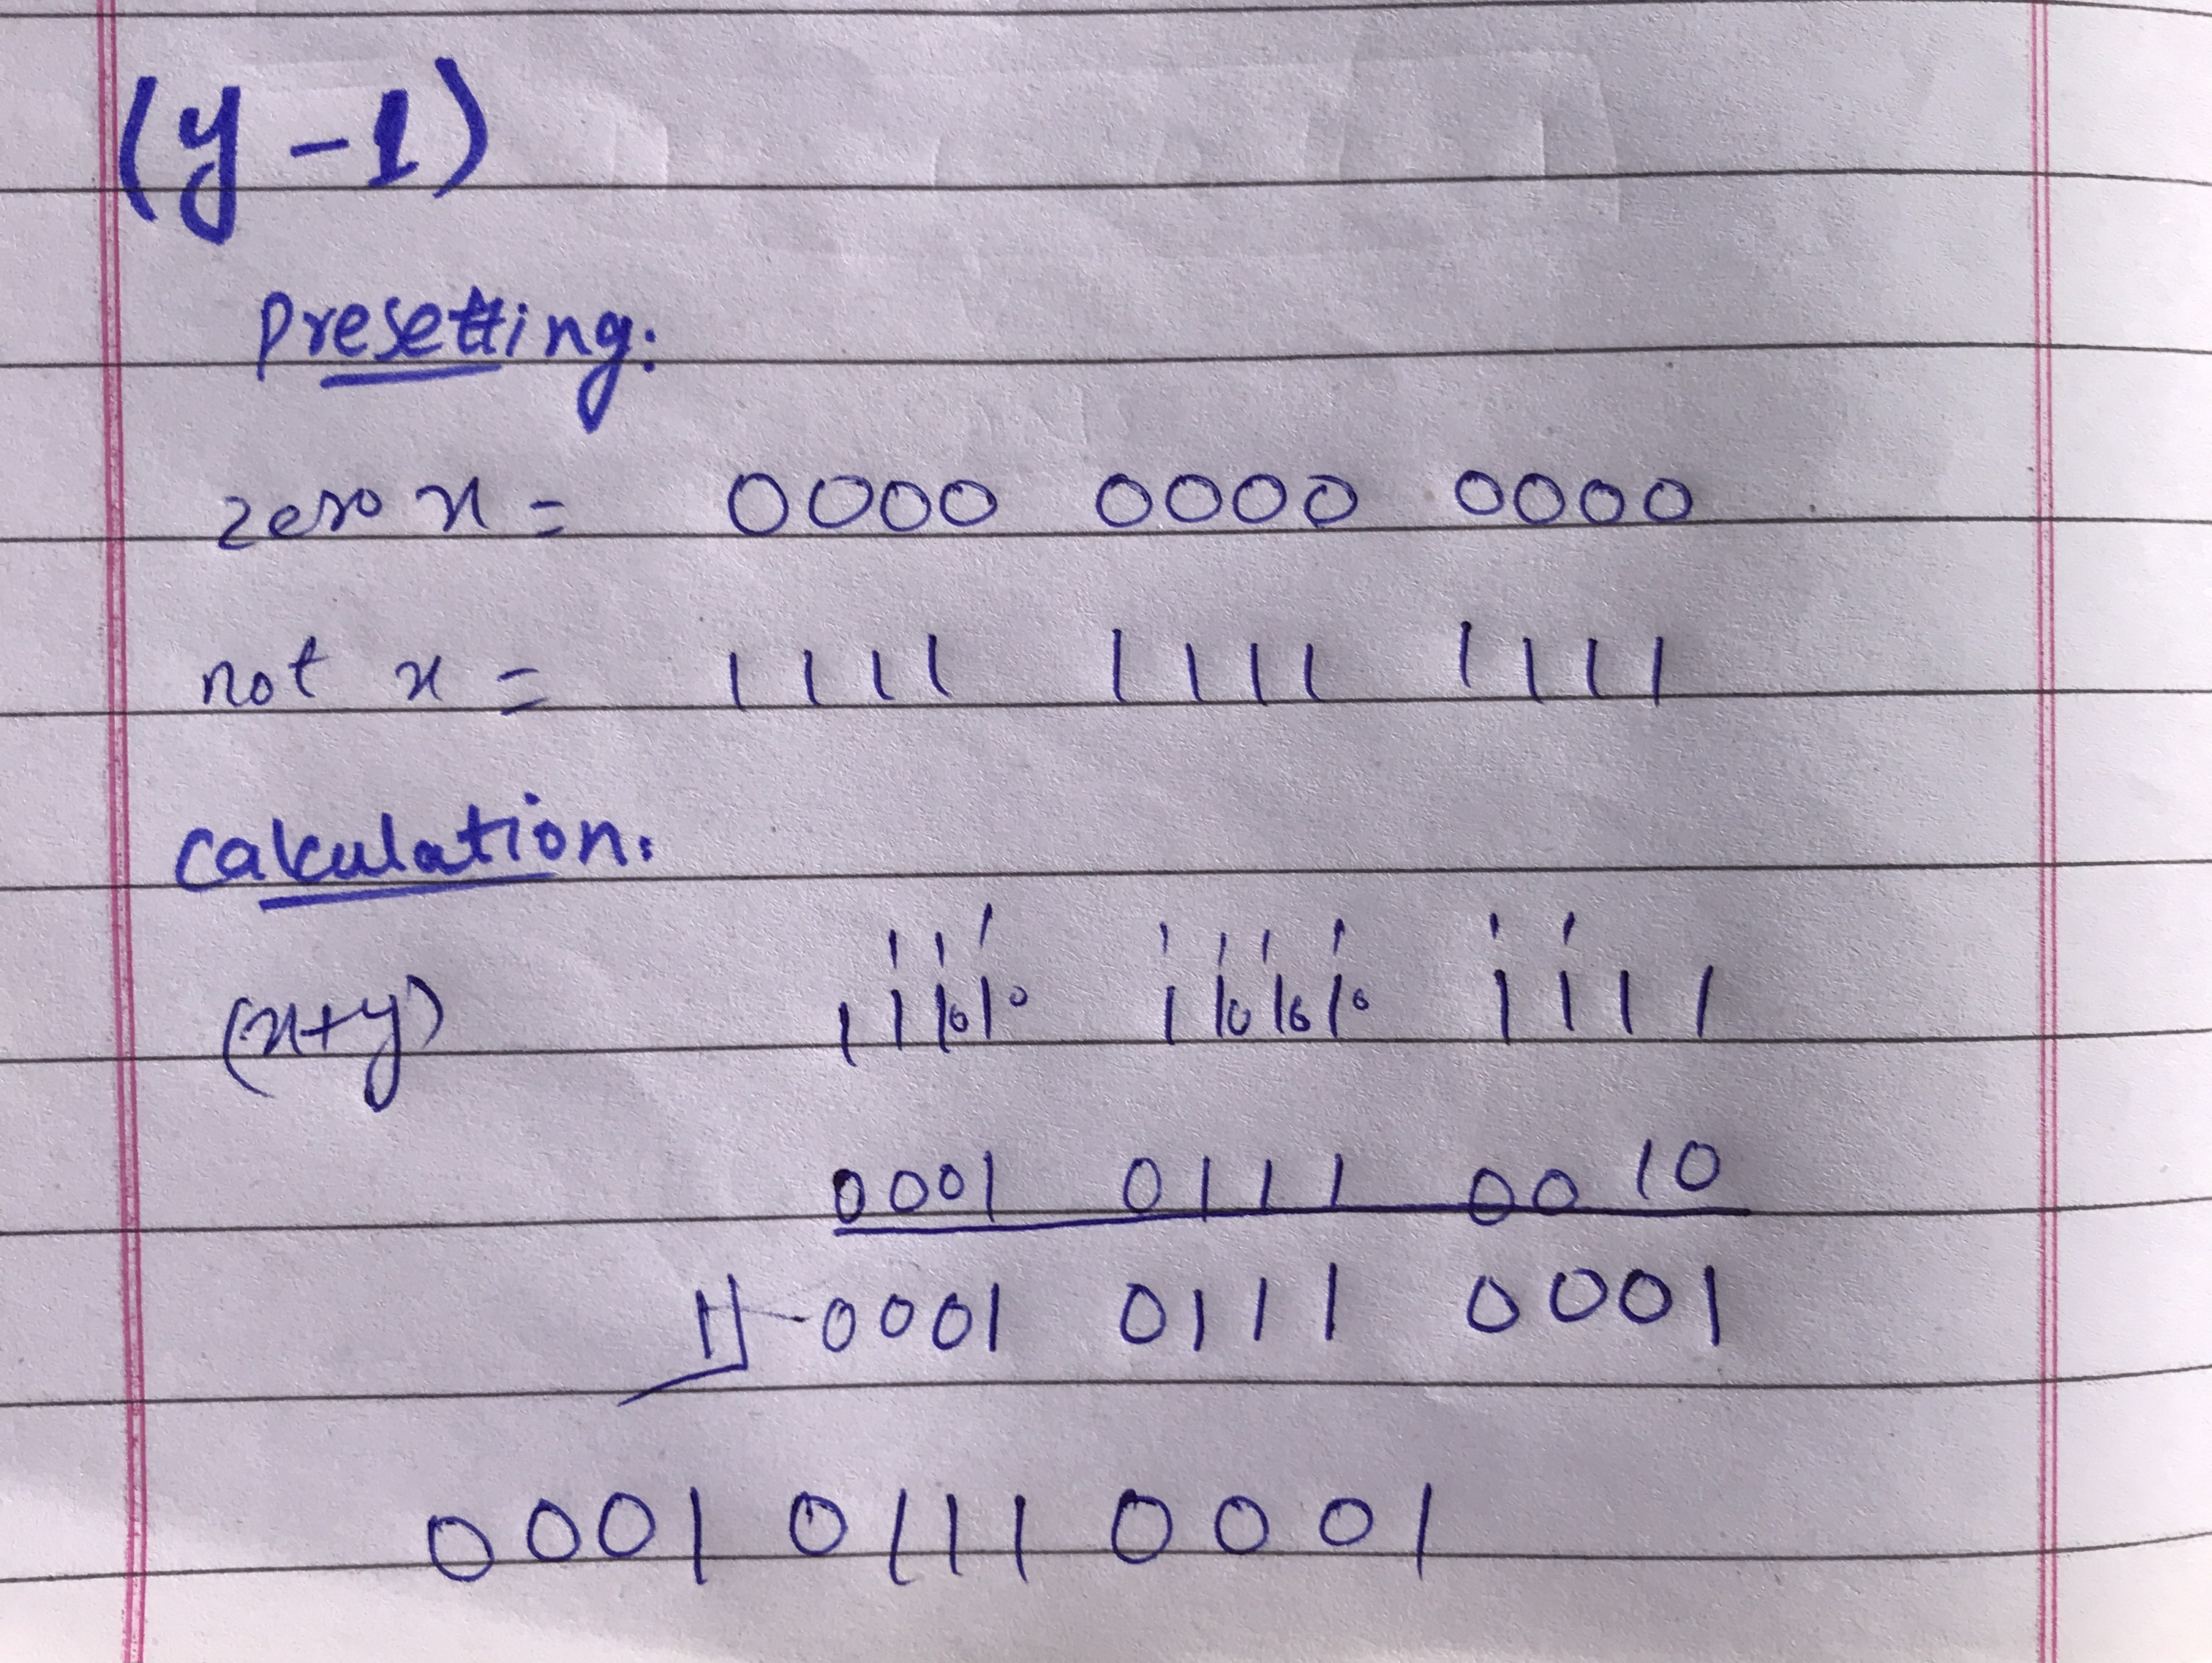 (y-1)
Presetting:
zero x = 0000 0000 0000
not x = 1111 1111 1111
Calculation.
1 1 1 1 1 1 1 1 1
(x+y) 1111 1111 1111
0001 0111 0010
1 0001 0111 0001
0001 0111 0001